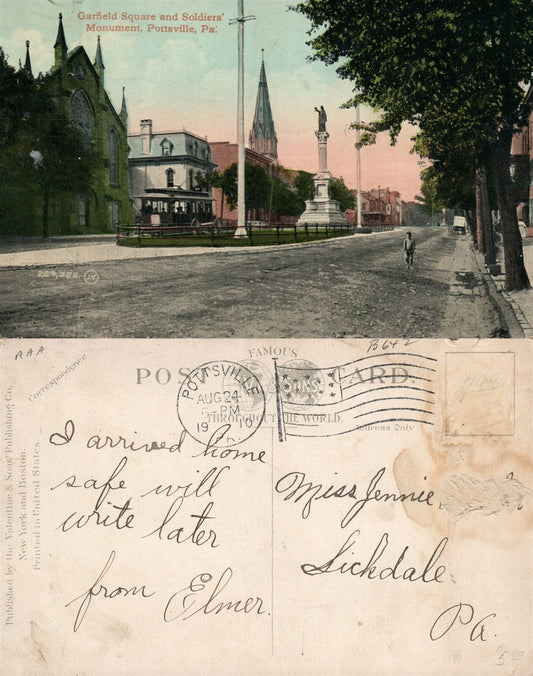 Garfield Square and Soldiers'
Monument, Pottsville, Pa.
204,382
JV
AAA
B642
Correspondence
FAMOUS
POST CARD.
THROUGHOUT THE WORLD.
Address Only
POTTSVILLE
AUG 24
PM
1910
PA.
Published by the Valentine & Sons' Publishing Co.
New York and Boston.
Printed in United States.
I arrived home
safe will
write later
from Elmer.
Miss Jennie
Lickdale,
Pa.
5.00